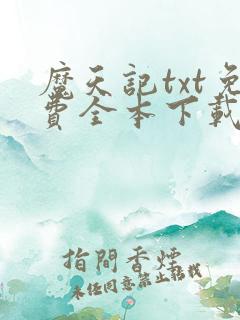 魔天記txt免
費全本下載
指間香煙
未經同意禁止轉載